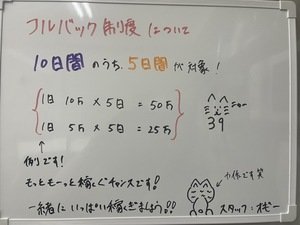 フルバック制度について
10日間のうち、5日間が対象!
1日 10万×5日=50万
1日 5万×5日=25万
例です!
もっともーっと稼ぐチャンスです!
一緒にいっぱい稼ぎましょう!!
ニャー
39
スタッフ:オギー